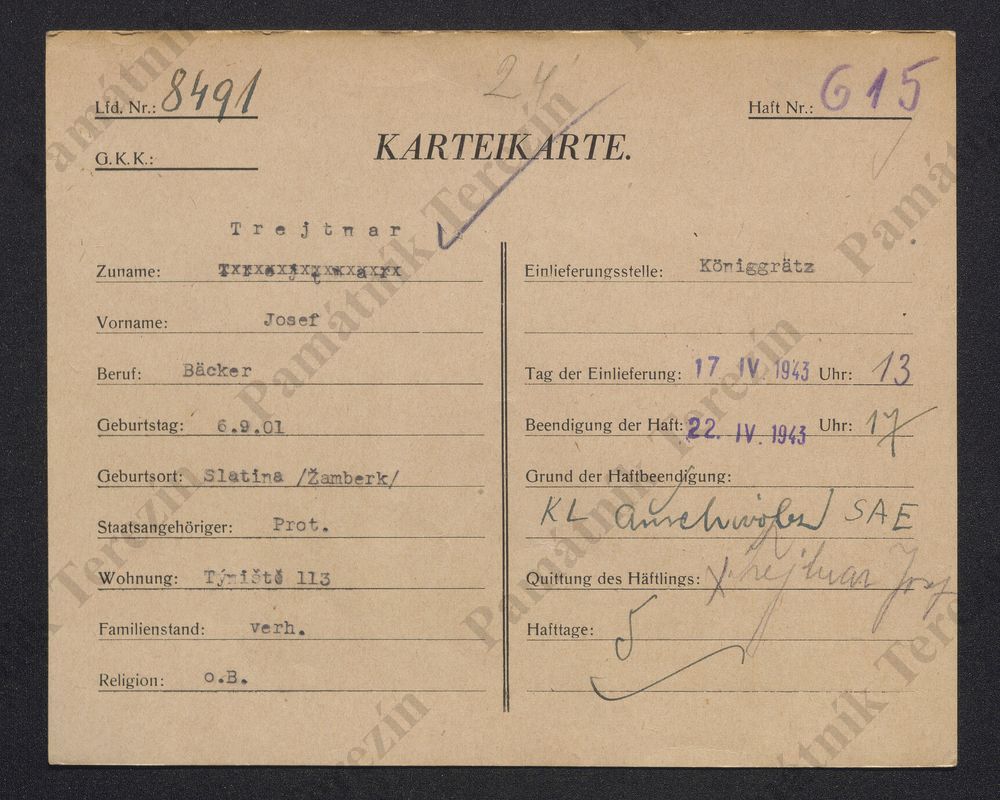 24
Lfd. Nr.: 8491
Haft Nr.: 615
G. K. K.:
KARTEIKARTE.
Trejtnar
Zuname:
Vorname: Josef
Beruf: Bäcker
Geburtstag: 6.9.01
Geburtsort: Slatina /Žamberk/
Staatsangehöriger: Prot.
Wohnung: Týniště 113
Familienstand: verh.
Religion: o.B.
Einlieferungsstelle: Königgrätz
Tag der Einlieferung: 17 IV. 1943 Uhr: 13
Beendigung der Haft: 22. IV. 1943 Uhr: 17
Grund der Haftbeendigung:
KL SAE
Quittung des Häftlings: Trejtnar Josef
Hafttage: 5
Památník Terezín
Památník Terezín
Památník Terezín
Památník Terezín